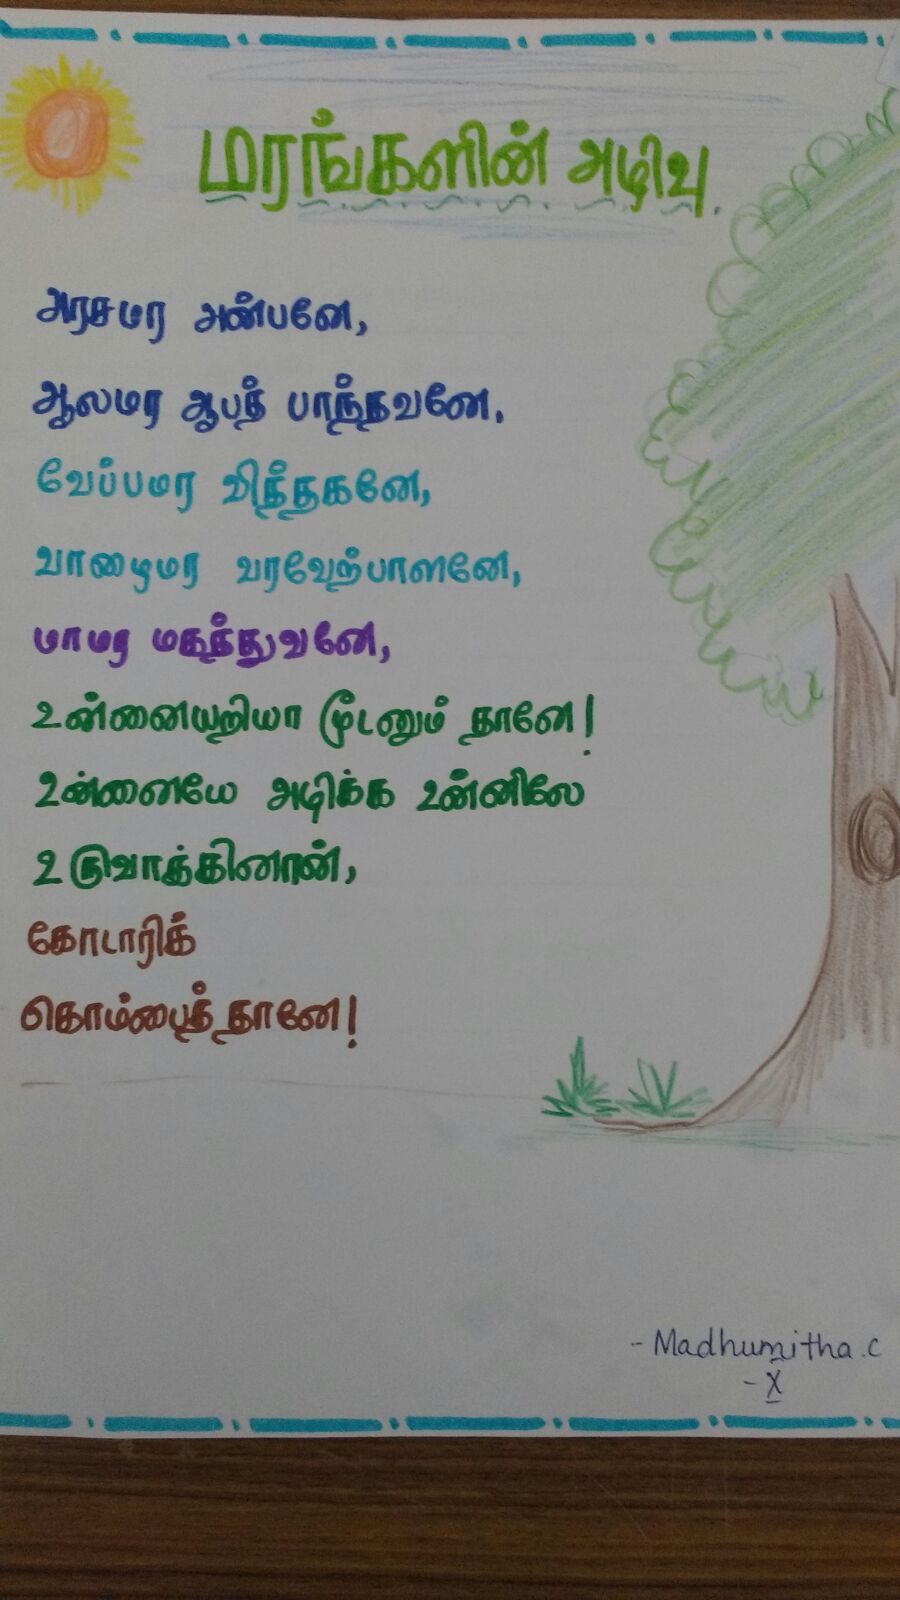 மரங்களின் அழிவு
அரசமர அன்பனே,
ஆலமர ஆபத் பாந்தவனே,
வேப்பமர வித்தகனே,
வாழைமர வரவேற்பாளனே,
மாமர மகத்துவனே,
உன்னையறியா மூடனும் தானே!
உன்னையே அழிக்க உன்னிலே
உருவாக்கினான்,
கோடாரிக்
கொம்பைத் தானே!
- Madhumitha.C
- X